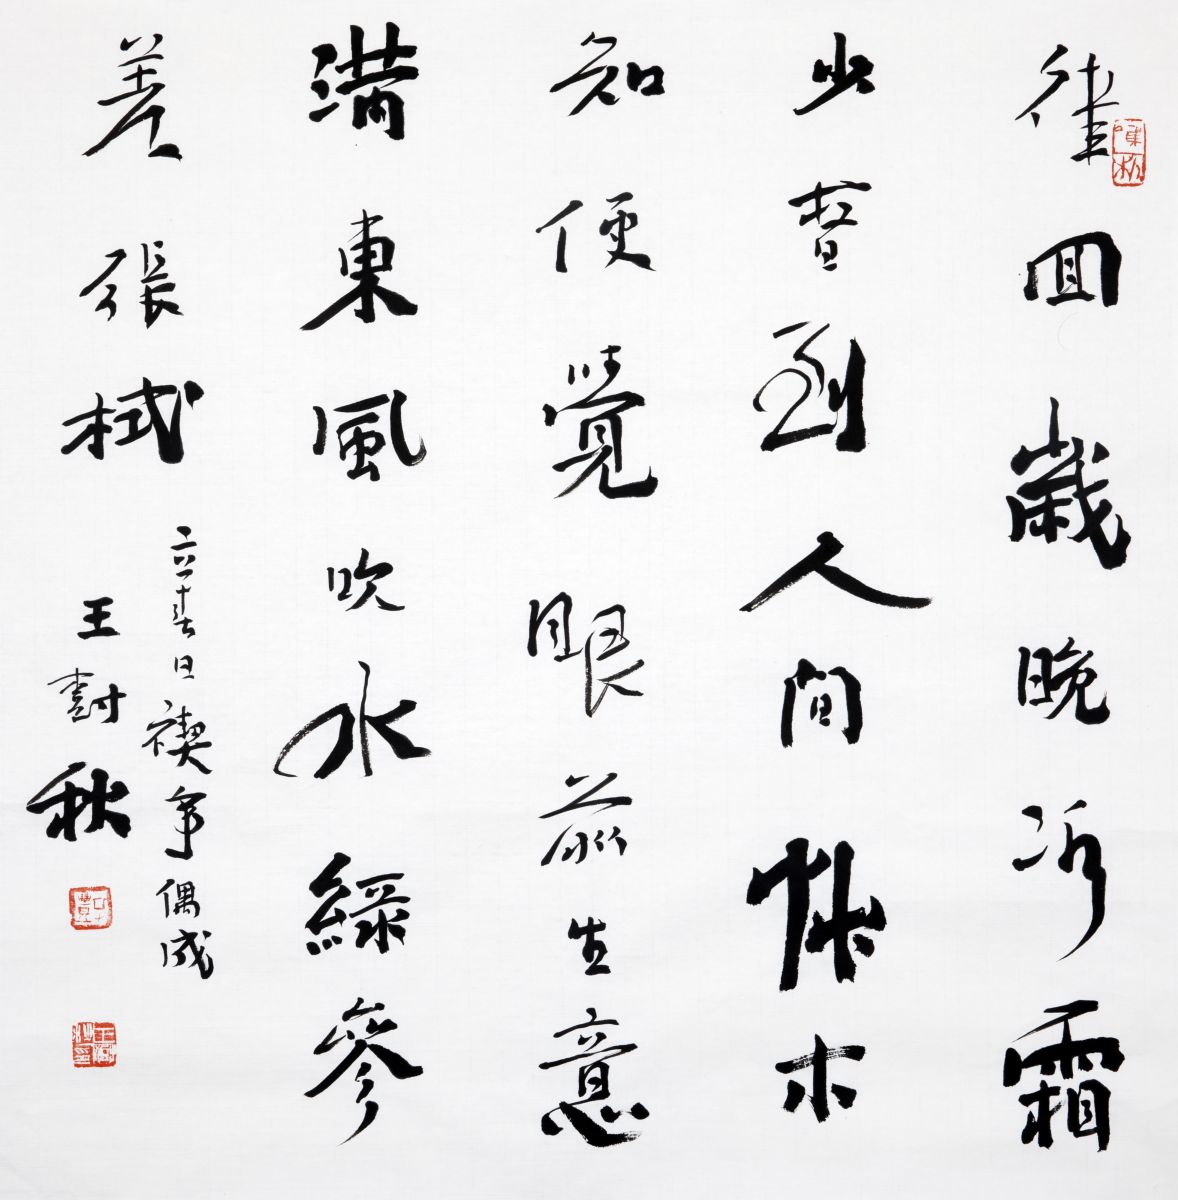 律回歲晚冰霜
少春到人間艸木
知便覺眼前生意
滿東風吹水綠參
差 張栻
立春日禊亭偶成
王 秋